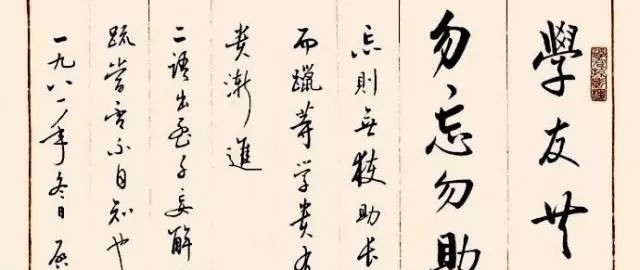 學友共
勿忘勿助
忘則無獲助長
而躐等学貴有
貴漸進
二語出孟子妄解
疏當否不自知也
一九八一年冬日